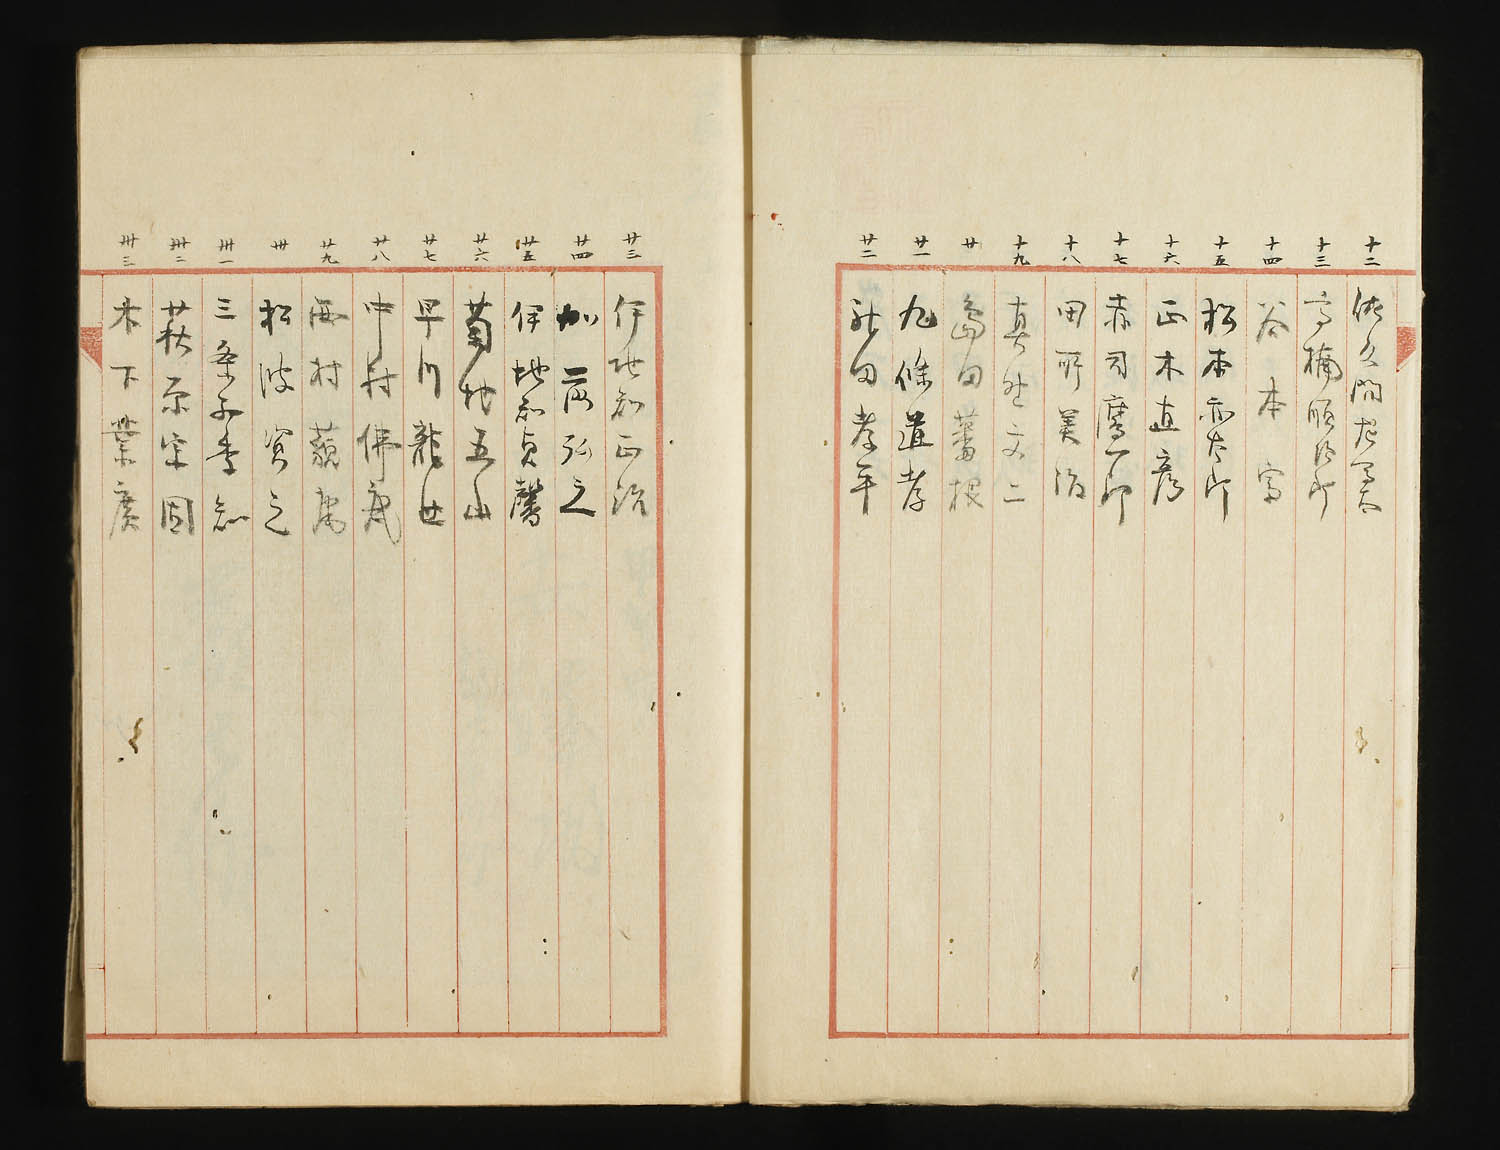 十二 佐久間左馬太
十三 高楠順次郎
十四 谷本富
十五 松本亦太郎
十六 正木直彦
十七 赤司鷹一郎
十八 田所美治
十九 真野文二
廿 島田蕃根
廿一 九條道孝
廿二 神田孝平
廿三 伊地知正治
廿四 加藤弘之
廿五 伊地知貞馨
廿六 菊池五山
廿七 早川龍
廿八 中村佛庵
廿九 西村藐庵
卅 松波資之
卅一 三条西季知
卅二 萩原宗固
卅三 木下業廣